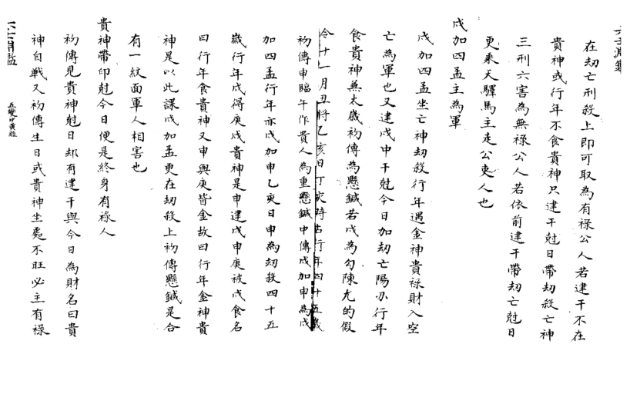 在刼亡刑殺上即可取為有禄公人若建干不在
貴神或行年不食貴神只建干尅日帶刼殺亡神
三刑六害為無禄公人若依前建干帶刼亡尅日
更乘天驛馬主走公吏人也
戌加四孟主為軍
戌加四孟坐亡神刼殺行年遇金神貴禄財入空
亡為軍也又建戊申干尅今日加刼亡陽亦行年
食貴神無太歲初傳為懸鍼若戌為勾陳尤的假
令十一月丑將乙亥日丁亥時占行年四十五歲
初傳申臨午作貴人為重懸鍼申傳戌加申為戌
加四孟行年亦戌加申乙庚日申為刼殺四十五
歲行年戌得庚戌貴神是申建戊申庚被戊食名
曰行年食貴神又申與庚皆金故曰行年金神貴
神是以此課戌加孟更在刼殺上初傳懸鍼是合
有一紋面軍人相害也
貴神帶印尅今日便是終身有禄人
初傳見貴神尅日却有建干與今日為財名曰貴
神自戰又初傳生日或貴神坐處不旺必主有禄